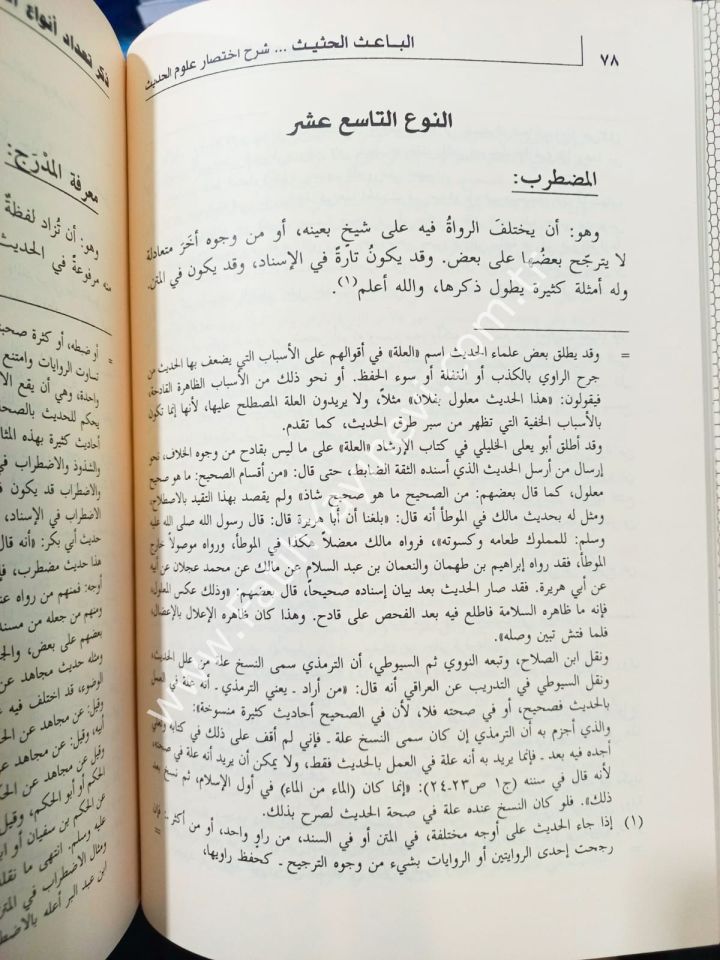 الباعث الحثيث ... شرح اختصار علوم الحديث
٧٨
النوع التاسع عشر
المضطرب:
وهو: أن يختلفَ الرواةُ فيه على شيخٍ بعينه، أو من وجوه أخَرَ متعادلة
لا يترجّح بعضُها على بعض. وقد يكونُ تارةً في الإسناد، وقد يكون في المتن.
وله أمثلة كثيرة يطول ذكرها، والله أعلم(١).
= وقد يطلق بعض علماء الحديث اسم «العلة» في أقوالهم على الأسباب التي يضعف بها الحديث من
جرح الراوي بالكذب أو الغفلة أو سوء الحفظ. أو نحو ذلك من الأسباب الظاهرة القادحة،
فيقولون: «هذا الحديث معلول بفلان» مثلاً، ولا يريدون العلة المصطلح عليها، لأنها إنما تكون
بالأسباب الخفية التي تظهر من سبر طرق الحديث، كما تقدم.
وقد أطلق أبو يعلى الخليلي في كتاب الإرشاد «العلة» على ما ليس بقادح من وجوه الخلاف، نحو
إرسال من أرسل الحديث الذي أسنده الثقة الضابط، حتى قال: «من أقسام الصحيح: ما هو صحيح
معلول، كما قال بعضهم: من الصحيح ما هو صحيح شاذ» ولم يقصد بهذا التقيد بالاصطلاح.
ومثل له بحديث مالك في الموطأ أنه قال: «بلغنا أن أبا هريرة قال: قال رسول الله صلى الله عليه
وسلم: للمملوك طعامه وكسوته»، فرواه مالك معضلاً هكذا في الموطأ، ورواه موصولاً خارج
الموطأ، فقد رواه إبراهيم بن طهمان والنعمان بن عبد السلام عن مالك عن محمد عجلان عن أبيه
عن أبي هريرة. فقد صار الحديث بعد بيان إسناده صحيحاً، قال بعضهم: «وذلك عكس المعلول،
فإنه ما ظاهره السلامة فاطلع فيه بعد الفحص على قادح. وهذا كان ظاهره الإعلال بالإعضال،
فلما فتش تبين وصله».
ونقل ابن الصلاح، وتبعه النووي ثم السيوطي، أن الترمذي سمى النسخ علة من علل الحديث،
ونقل السيوطي في التدريب عن العراقي أنه قال: «من أراد - يعني الترمذي - أنه علة في العمل
بالحديث فصحيح، أو في صحته فلا، لأن في الصحيح أحاديث كثيرة منسوخة»:
والذي أجزم به أن الترمذي إن كان سمى النسخ علة - فإني لم أقف على ذلك في كتابه ولعلي
أجده فيه بعد - فإنما يريد به أنه علة في العمل بالحديث فقط، ولا يمكن أن يريد أنه علة في صحته،
لأنه قال في سننه (ج١ ص٢٣-٢٤): «إنما كان (الماء من الماء) في أول الإسلام، ثم نسخ بعد
ذلك». فلو كان النسخ عنده علة في صحة الحديث لصرح بذلك.
(١) إذا جاء الحديث على أوجه مختلفة، في المتن أو في السند، من راو واحد، أو من أكثر -: فإن
رجحت إحدى الروايتين أو الروايات بشيء من وجوه الترجيح - كحفظ راويها، =
ذكر تعداد أنواع
معرفة المدْرَج:
وهو: أن تُزاد لفظةٌ
مرفوعةً في الحديث
أو ضبطه، أو كثرة صحبته
تساوت الروايات وامتنع
واحدة، وهي أن يقع الا
يحكم للحديث بالصحة
أحاديث كثيرة بهذه المثا
والشذوذ والاضطراب في
والاضطراب قد يكون في
الاضطراب في الإسناد،
حديث أبي بكر: «أنه قال
هذا حديث مضطرب، فإ
أوجه: فمنهم من رواه عنه
ومنهم من جعله من مسند
بعضهم على بعض، والجم
ومثله حديث مجاهد عن
الوضوء، قد اختلف فيه
وقيل: عن مجاهد عن الحك
أبيه، وقيل: عن مجاهد عن
وقيل عن مجاهد عن الحكم
الحكم أو أبو الحكم، وقيل
عن الحكم بن سفيان أو ابن
عليه وسلم. انتهى ما نقله
ومثال الاضطراب في المتن
ابن عبد البر أعله بالاضط